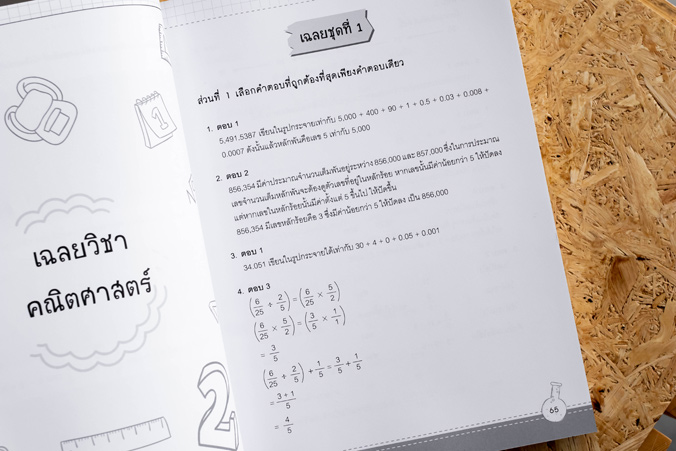 เฉลยวิชา
คณิตศาสตร์
เฉลยชุดที่ 1
ส่วนที่ 1 เลือกคำตอบที่ถูกต้องที่สุดเพียงคำตอบเดียว
1. ตอบ 1
5,491.5387 เขียนในรูปกระจายเท่ากับ 5,000 + 400 + 90 + 1 + 0.5 + 0.03 + 0.008 +
0.0007 ดังนั้นแล้วหลักพันคือเลข 5 เท่ากับ 5,000
2. ตอบ 2
856,354 มีค่าประมาณจำนวนเต็มพันอยู่ระหว่าง 856,000 และ 857,000 ซึ่งในการประมาณ
เลขจำนวนเต็มหลักพันจะต้องดูตัวเลขที่อยู่ในหลักร้อย หากเลขนั้นมีค่าน้อยกว่า 5 ให้ปัดลง
แต่หากเลขในหลักร้อยนั้นมีค่าตั้งแต่ 5 ขึ้นไป ให้ปัดขึ้น
856,354 มีเลขหลักร้อยคือ 3 ซึ่งมีค่าน้อยกว่า 5 ให้ปัดลง เป็น 856,000
3. ตอบ 1
34.051 เขียนในรูปกระจายได้เท่ากับ 30 + 4 + 0 + 0.05 + 0.001
4. ตอบ 3
(6/25 ÷ 2/5) = (6/25 × 5/2)
(6/25 × 5/2) = (3/5 × 1/1)
= 3/5
(6/25 ÷ 2/5) + 1/5 = 3/5 + 1/5
= 3 + 1/5
= 4/5
65